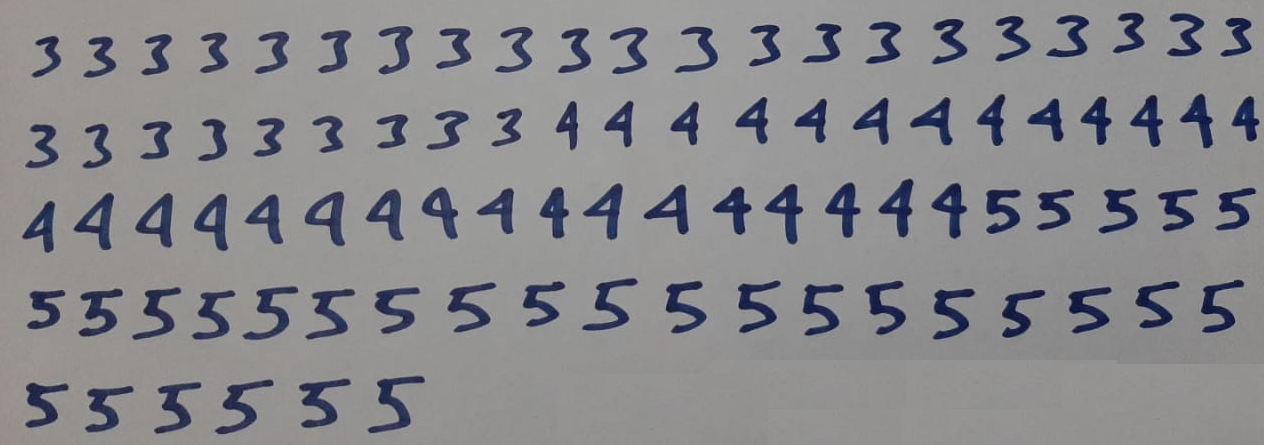 3 3 3 3 3 3 3 3 3 3 3 3 3 3 3 3 3 3 3 3 3
3 3 3 3 3 3 3 3 3 4 4 4 4 4 4 4 4 4 4 4 4 4
4 4 4 4 4 4 4 4 4 4 4 4 4 4 4 4 4 5 5 5 5 5
5 5 5 5 5 5 5 5 5 5 5 5 5 5 5 5 5 5 5
5 5 5 5 5 5